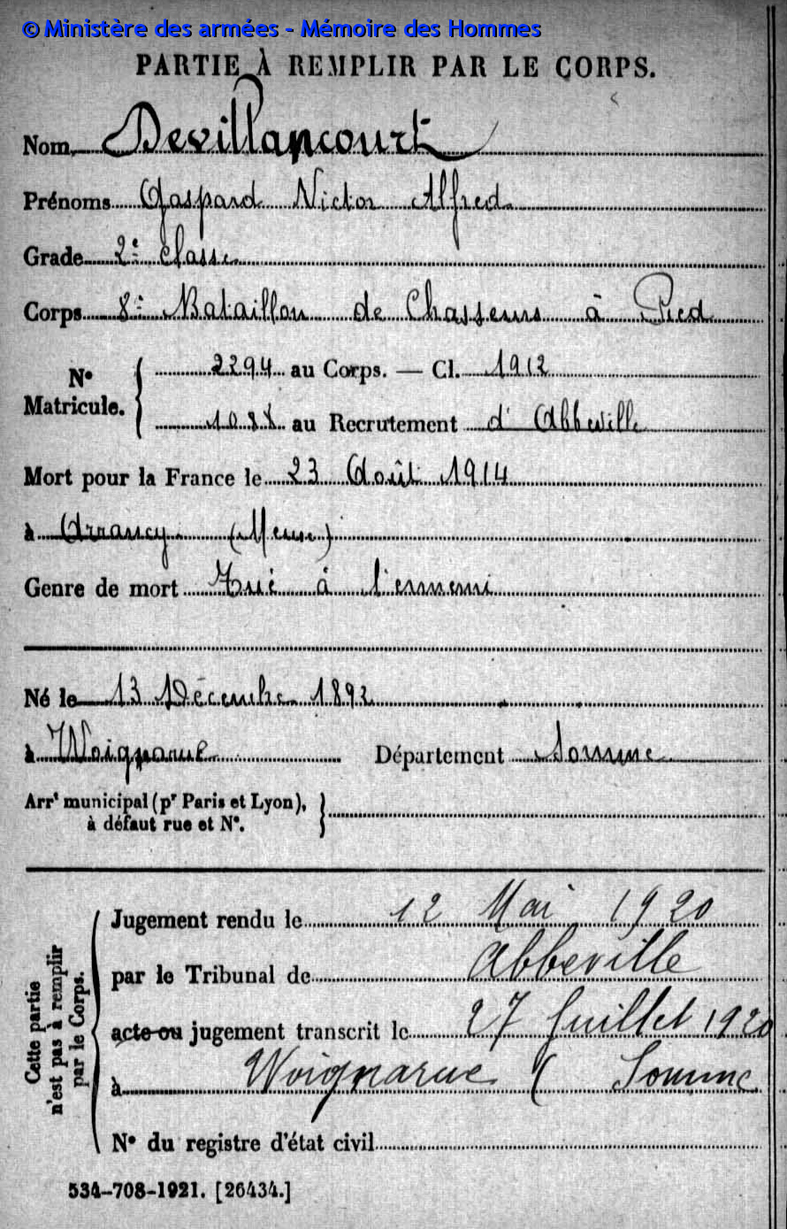 © Ministère des armées - Mémoire des Hommes
PARTIE À REMPLIR PAR LE CORPS.
Nom Devillancourt
Prénoms Gaspard Victor Alfred
Grade 2e classe
Corps 8e Bataillon de Chasseurs à Pied
No Matricule. { 2294 au Corps. — Cl. 1912
au Recrutement d'Abbeville
Mort pour la France le 23 Août 1914
à Arrancy (Meuse)
Genre de mort Tué à l'ennemi
Né le 13 Décembre 1892
à Woignarue Département Somme
Arrt municipal (pr Paris et Lyon), }
à défaut rue et No.
Cette partie
n'est pas à remplir
par le Corps.
Jugement rendu le 12 Mai 1920
par le Tribunal de Abbeville
acte ou jugement transcrit le 27 Juillet 1920
à Woignarue ( Somme
No du registre d'état civil
534-708-1921. [26434.]